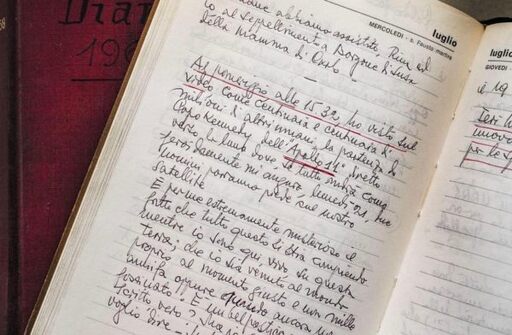 Diar
196
MERCOLEDÌ - s. Fausto martire
luglio
abbiamo assistito Pina ed
io al seppellimento a Borgone di Susa
della Mamma di Carlo. —
Al pomeriggio alle 15.32, ho visto sul
video come centinaia e centinaia di
milioni di altri umani, la partenza da
Capo Kennedy dell'Apollo 11 diretto
verso la luna dove se tutto andrà come
fervidamente mi auguro, lunedì 21, due
uomini porranno piede sul nostro
satellite.
È per me estremamente misterioso il
fatto che tutto questo si stia compiendo
mentre io sono qui vivo su questa
terra; che io sia venuto al mondo
proprio al momento giusto e non mille
anni fa oppure ancora
voglio dire
luglio
GIOVEDÌ
e 19
Ieri
nuovo
per lo s